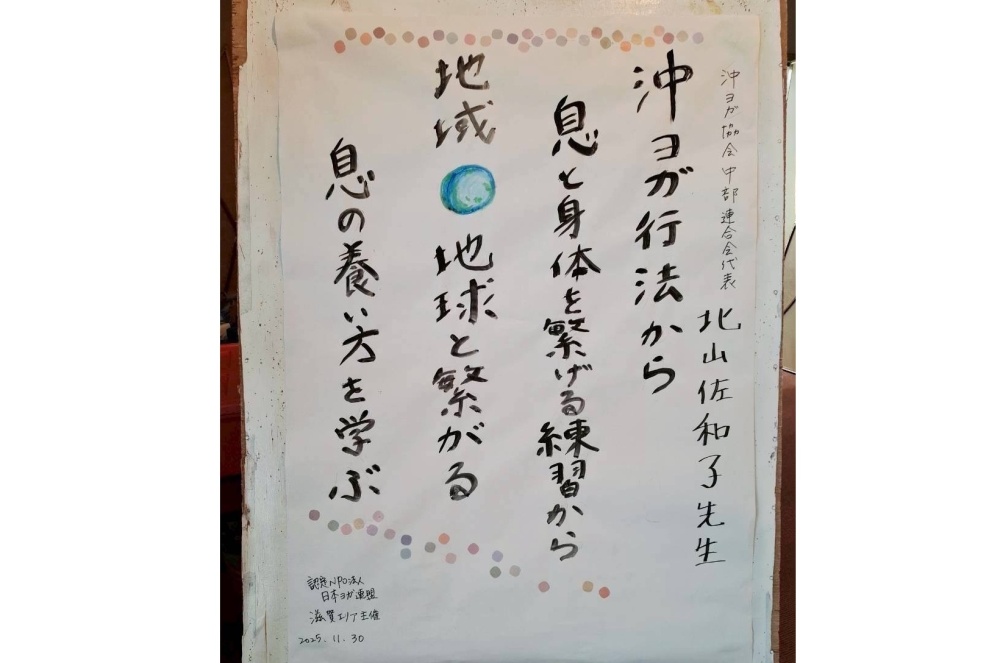 沖ヨガ協会中部連合会代表 北山佐和子先生
沖ヨガ行法から
息と身体を繋げる練習から
地域 地球と繋がる
息の養い方を学ぶ
認定NPO法人
日本ヨガ連盟
滋賀エリア主催
2025.11.30